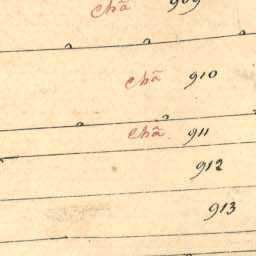 chã 909
chã 910
chã 911
912
913